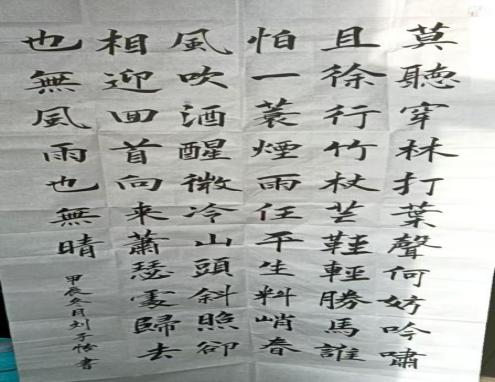 莫聽穿林打葉聲何妨吟嘯
且徐行竹杖芒鞋輕勝馬誰
怕一蓑煙雨任平生料峭春
風吹酒醒微冷山頭斜照卻
相迎回首向来蕭瑟處歸去
也無風雨也無晴
甲辰冬月刘子書